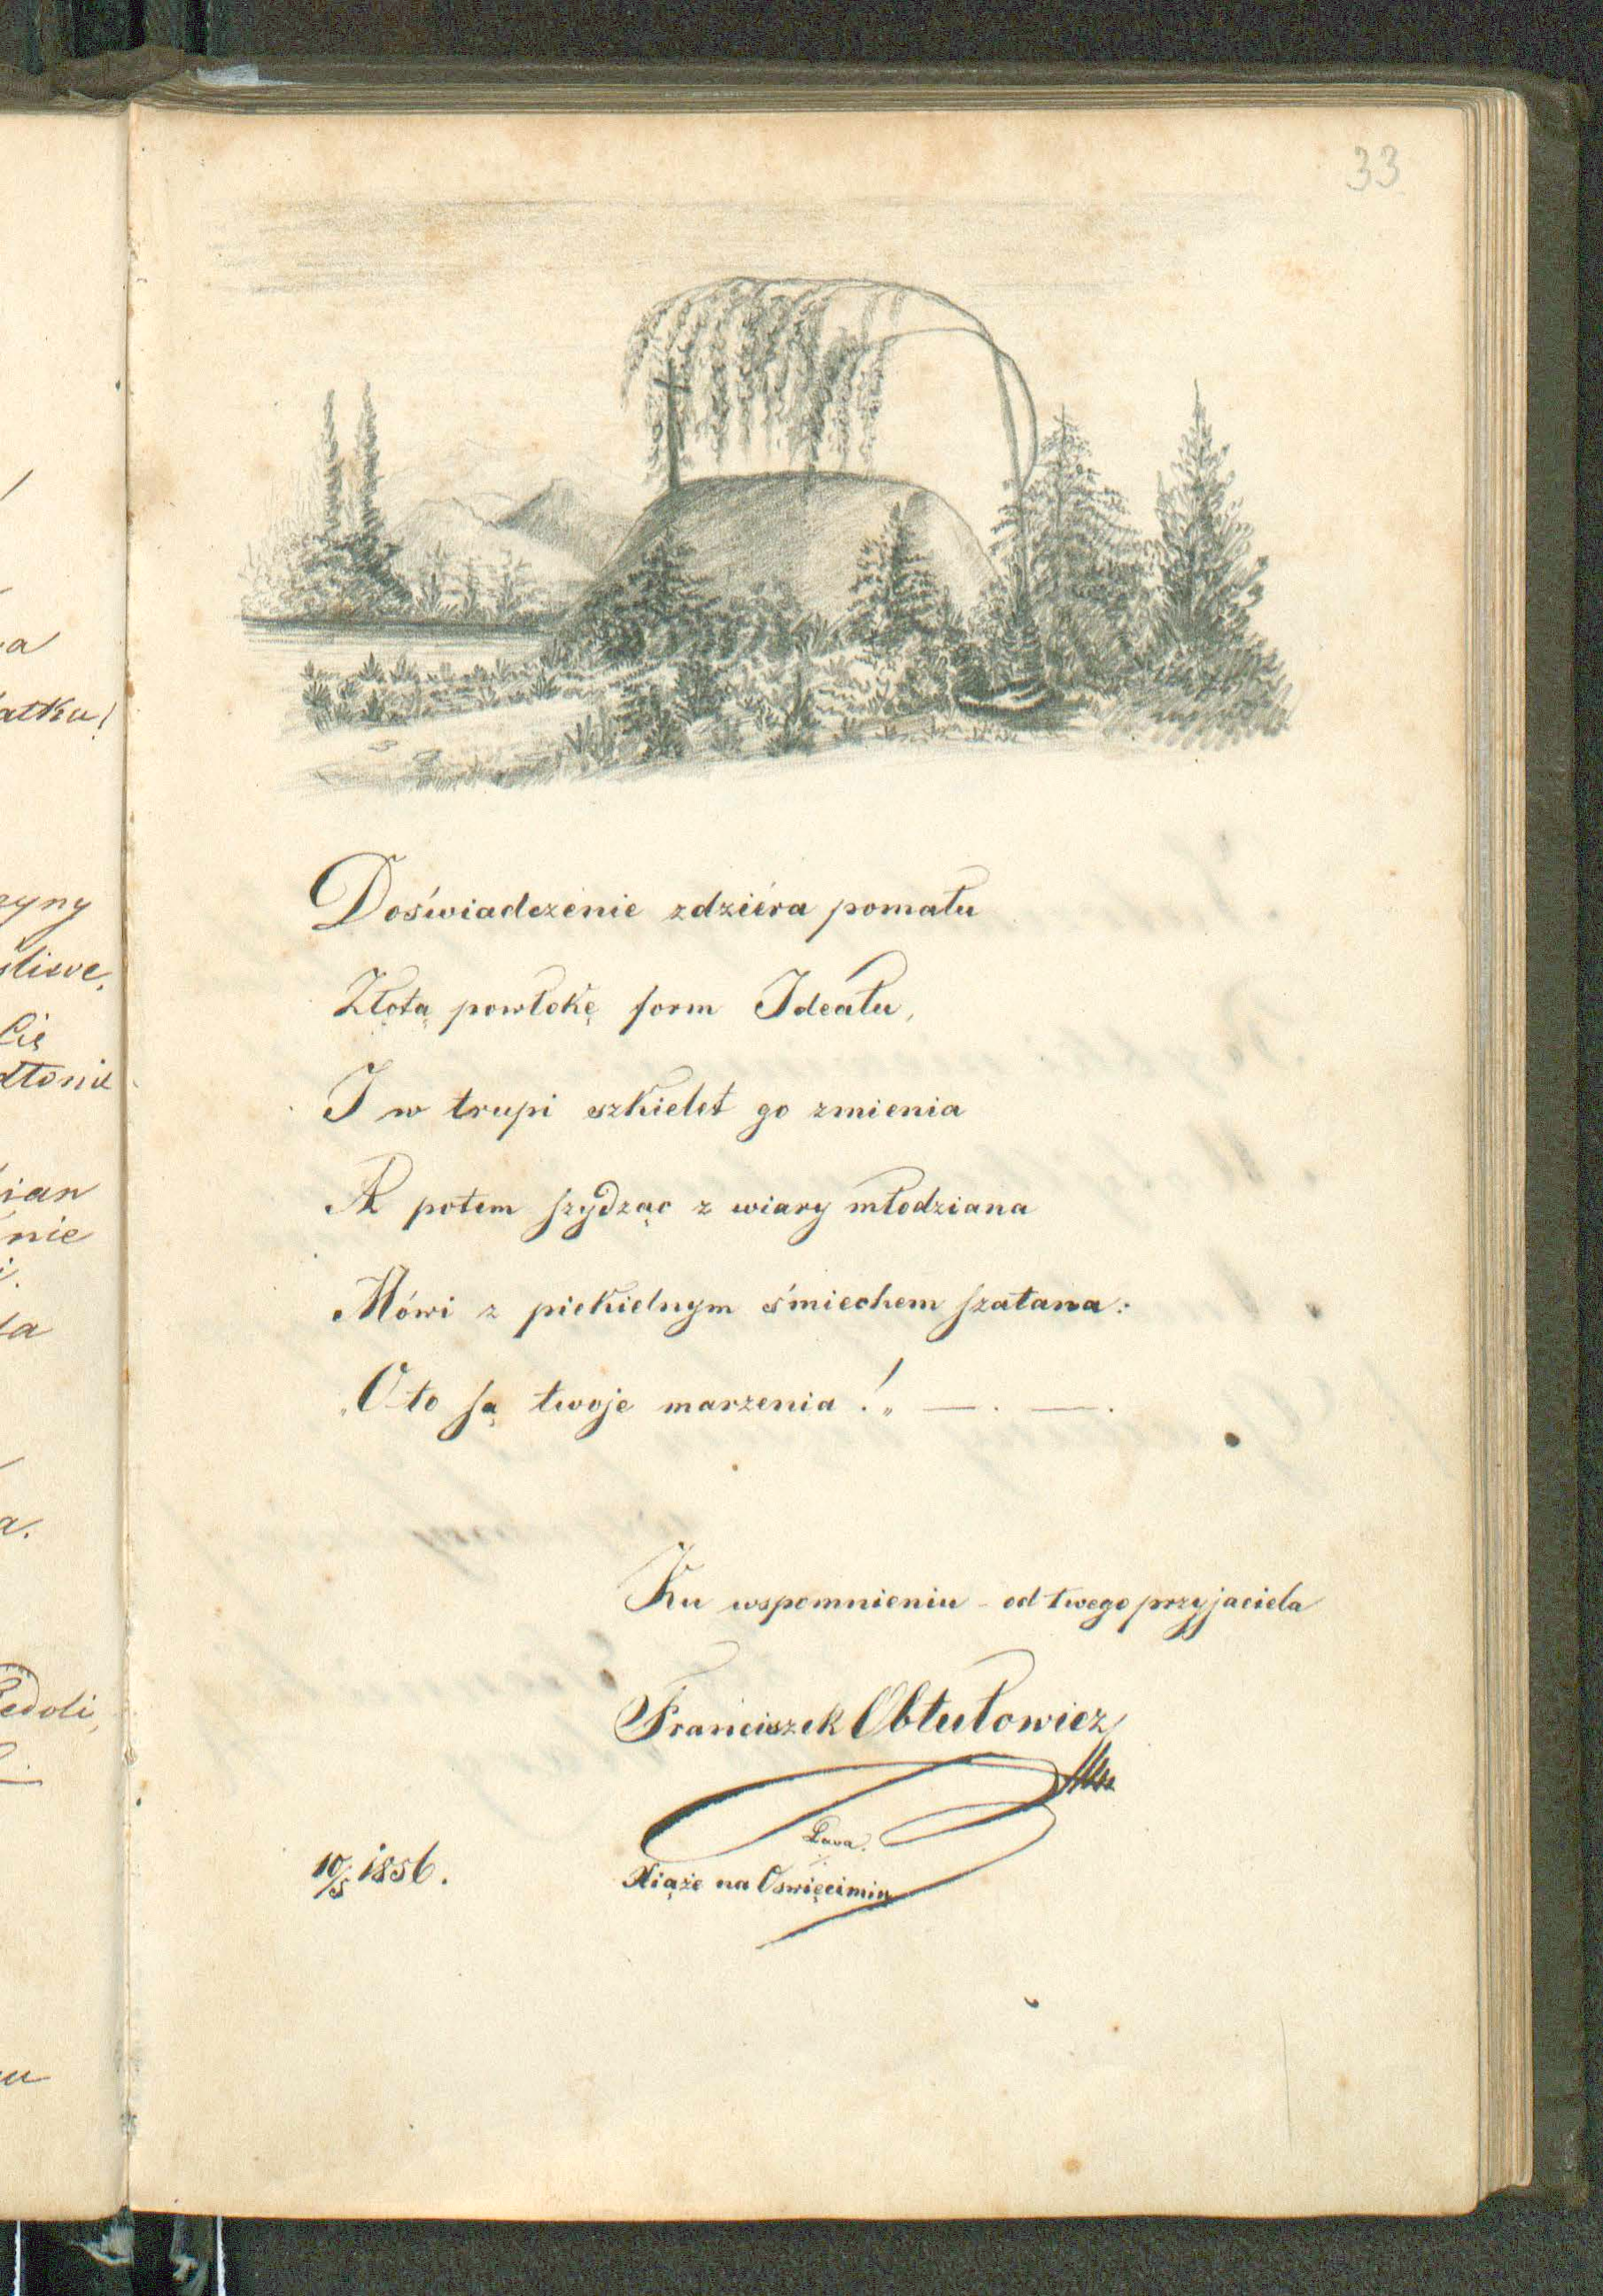 33
Doświadczenie zdziéra pomału
Złotą powłokę form Ideału,
I w trupi szkielet go zmienia
A potem szydząc z wiary młodziana
Mówi z piekielnym śmiechem szatana:
„Oto są twoje marzenia!„ — . — .
Ku wspomnieniu - od twego przyjaciela
Franciszek Obtułowicz
10/5 1856.
Xiąże na Oświęcimiu
atku!
Cię
nie